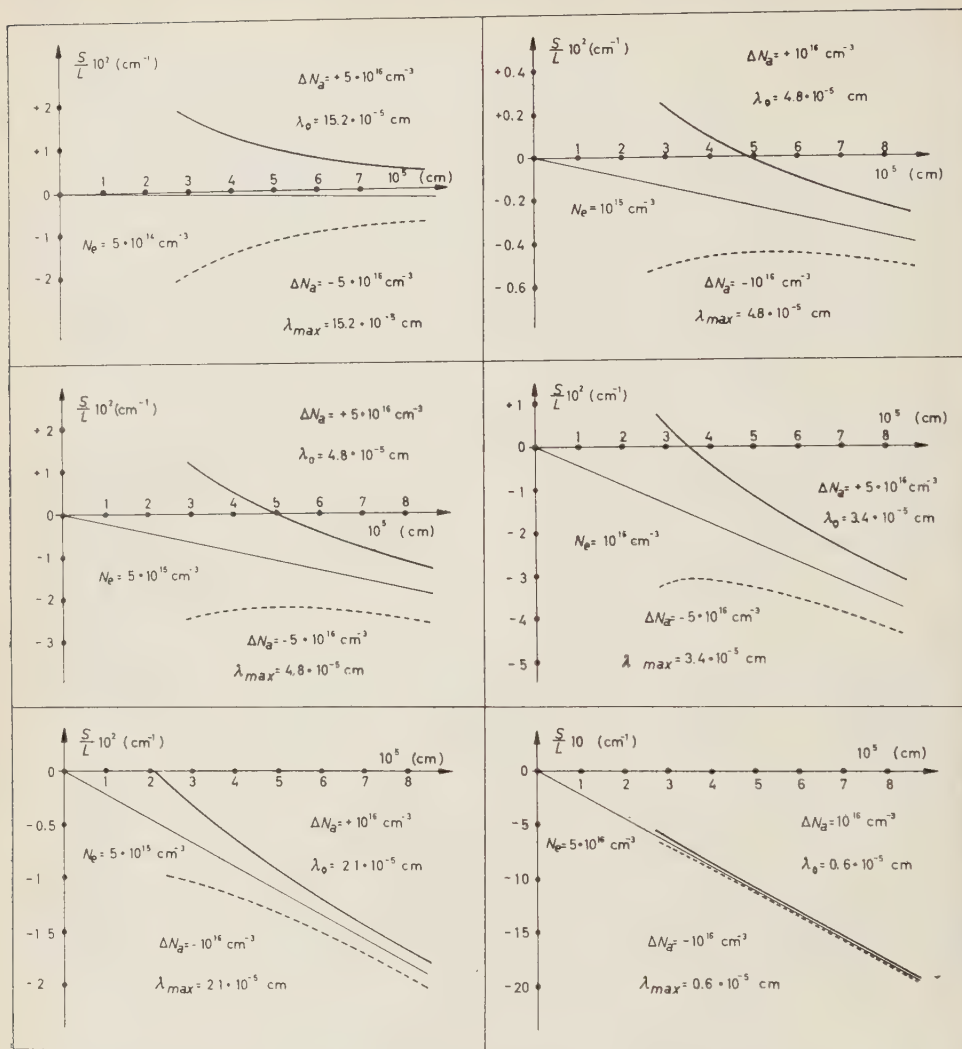 S/L 10² (cm⁻¹)
ΔNₐ = + 5 • 10¹⁶ cm⁻³
λ₀ = 15.2 • 10⁻⁵ cm
+ 2
+ 1
0
1 2 3 4 5 6 7 10⁵ (cm)
Nₑ = 5 • 10¹⁴ cm⁻³
- 1
- 2
ΔNₐ = - 5 • 10¹⁶ cm⁻³
λmax = 15.2 • 10⁻⁵ cm
S/L 10² (cm⁻¹)
ΔNₐ = + 10¹⁶ cm⁻³
λ₀ = 4.8 • 10⁻⁵ cm
+ 0.4
+0.2
0
1 2 3 4 5 6 7 8
10⁵ (cm)
Nₑ = 10¹⁵ cm⁻³
- 0.2
- 0.4
- 0.6
ΔNₐ = -10¹⁶ cm⁻³
λmax = 4.8 • 10⁻⁵ cm
S/L 10² (cm⁻¹)
ΔNₐ = + 5 • 10¹⁶ cm⁻³
λ₀ = 4.8 • 10⁻⁵ cm
+ 2
+ 1
0
1 2 3 4 5 6 7 8
10⁵ (cm)
Nₑ = 5 • 10¹⁵ cm⁻³
- 1
- 2
- 3
ΔNₐ = - 5 • 10¹⁶ cm⁻³
λmax = 4.8 • 10⁻⁵ cm
S/L 10² (cm⁻¹)
+ 1
10⁵ (cm)
0
1 2 3 4 5 6 7 8
ΔNₐ = + 5 • 10¹⁶ cm⁻³
λ₀ = 3.4 • 10⁻⁵ cm
Nₑ = 10¹⁶ cm⁻³
- 1
- 2
- 3
- 4
- 5
ΔNₐ = - 5 • 10¹⁶ cm⁻³
λ max = 3.4 • 10⁻⁵ cm
S/L 10² (cm⁻¹)
10⁵ (cm)
0
1 2 3 4 5 6 7 8
ΔNₐ = + 10¹⁶ cm⁻³
λ₀ = 2 1 • 10⁻⁵ cm
- 0.5
Nₑ = 5 • 10¹⁵ cm⁻³
- 1
- 1 5
- 2
ΔNₐ = - 10¹⁶ cm⁻³
λmax = 2 1 • 10⁻⁵ cm
S/L 10 (cm⁻¹)
10⁵ (cm)
0
1 2 3 4 5 6 7 8
ΔNₐ = 10¹⁶ cm⁻³
λ₀ = 0.6 • 10⁻⁵ cm
- 5
Nₑ = 5 • 10¹⁶ cm⁻³
-10
-15
-20
ΔNₐ = -10¹⁶ cm⁻³
λmax = 0.6 • 10⁻⁵ cm